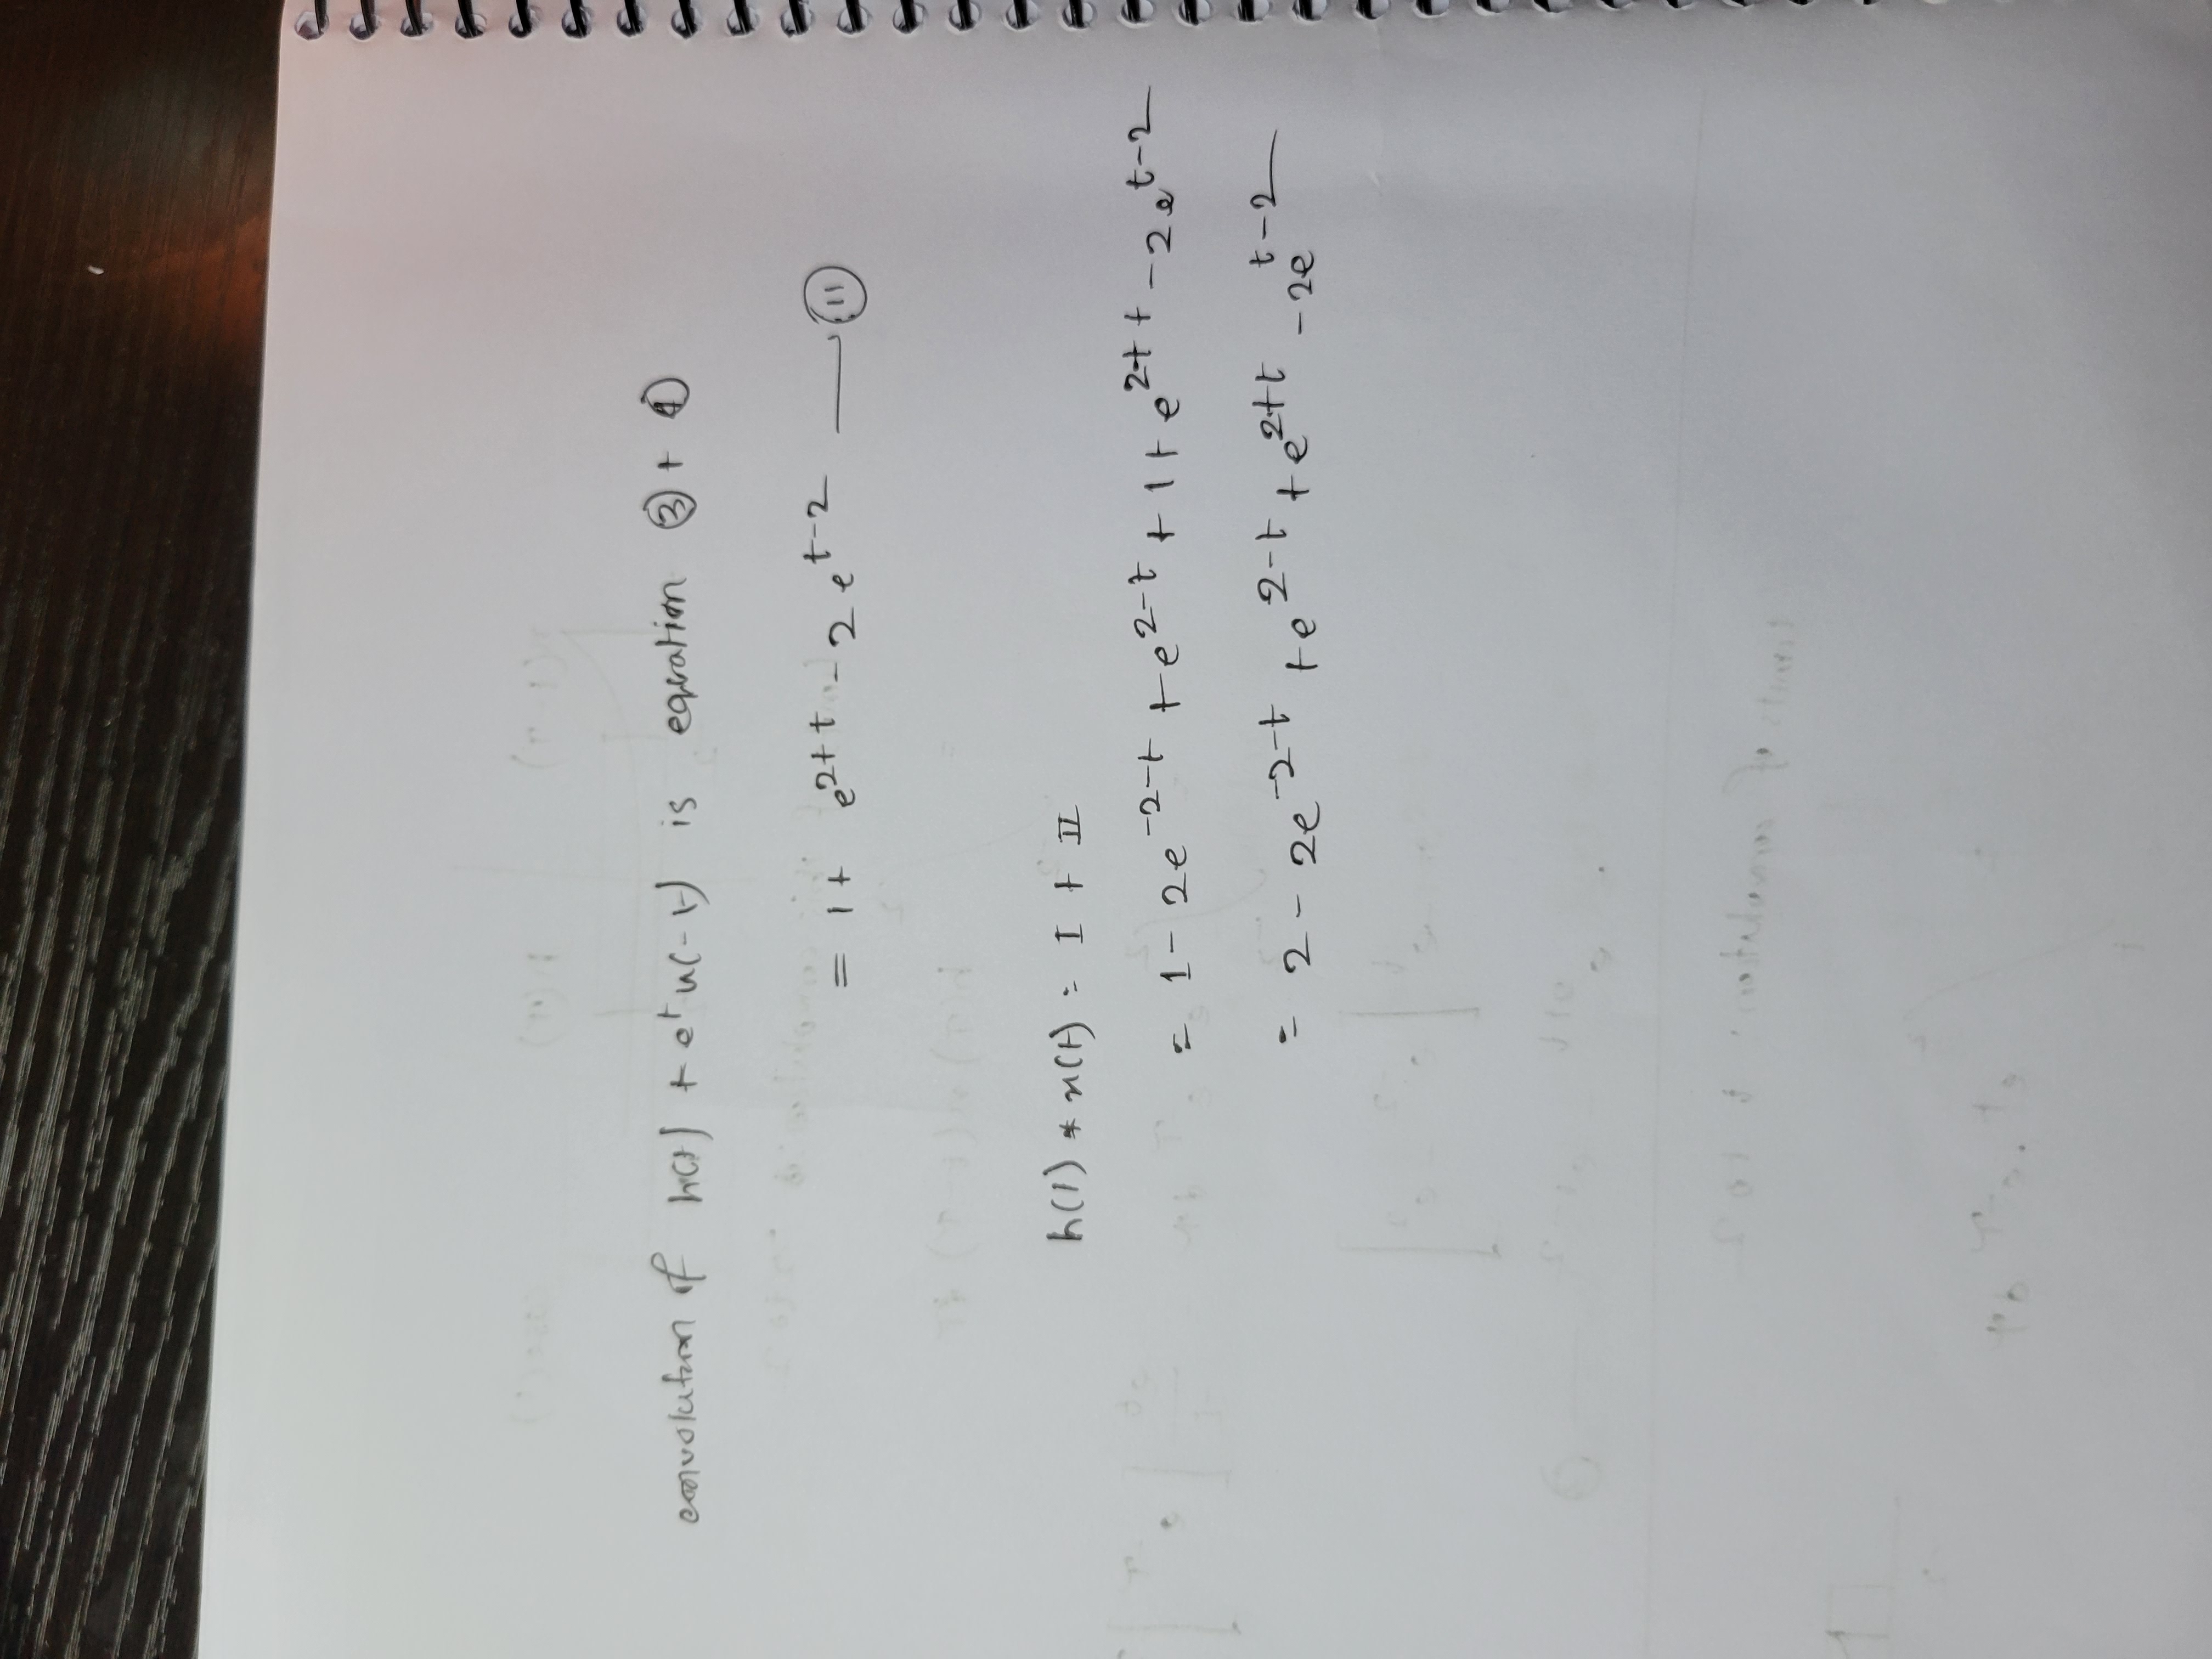 convolution of h(t) + e^t u(-t) is equation ③ + ④
= 1 + e^{2+t} - 2e^{t-2} —— (II)
h(t) * x(t) = I + II
= 1 - 2e^{-2-t} + e^{2-t} + 1 + e^{2+t} - 2e^{t-2}
= 2 - 2e^{-2-t} + e^{2-t} + e^{2+t} - 2e^{t-2}